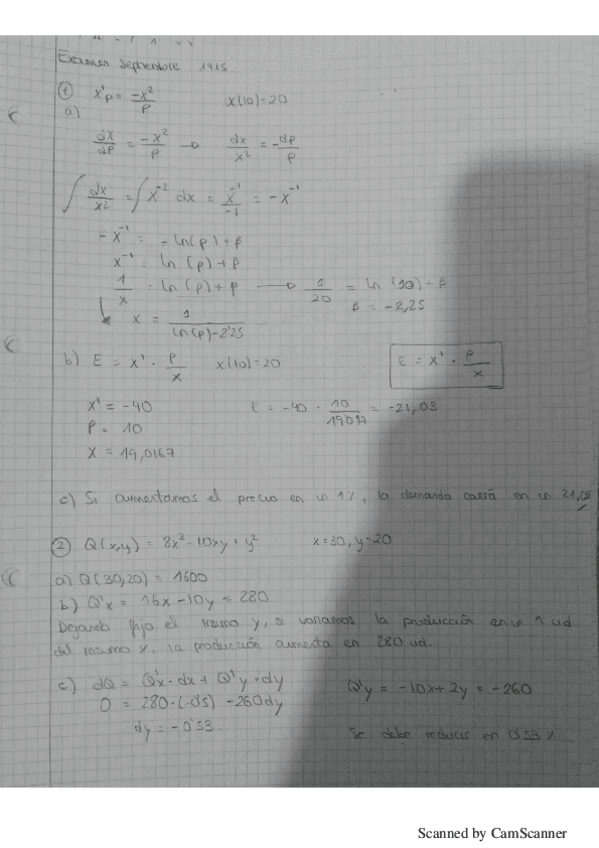 Examen Septiembre 1415
① x'p = -x²/p x(10)=20
a)
dx/dp = -x²/p → dx/x² = -dp/p
∫ dx/x² = ∫ x⁻² dx = x⁻¹/-1 = -x⁻¹
-x⁻¹ = -ln(p)+β
x⁻¹ = ln(p)+β
1/x = ln(p)+β → 1/20 = ln(10)-β
β = -2,25
x = 1/(ln(p)-2'25)
b) E = x' · p/x x(10)=20 E = x' · p/x
x' = -40 E = -40 · 10/19017 = -21,03
P = 10
x = 19,0167
c) Si aumentamos el precio en un 1%, la demanda caerá en un 21,03
② Q(x,y) = 8x²-10xy+y² x=30, y=20
a) Q(30,20) = 1600
b) Q'x = 16x-10y = 280
Dejando fijo el insumo y, si variamos la producción en un 1 ud
del insumo x, la producción aumenta en 280 ud.
c) dQ = Q'x·dx + Q'y·dy Q'y = -10x+2y = -260
0 = 280·(-0'5) -260dy
dy = -0'53 Se debe reducir en 0'53 %
Scanned by CamScanner